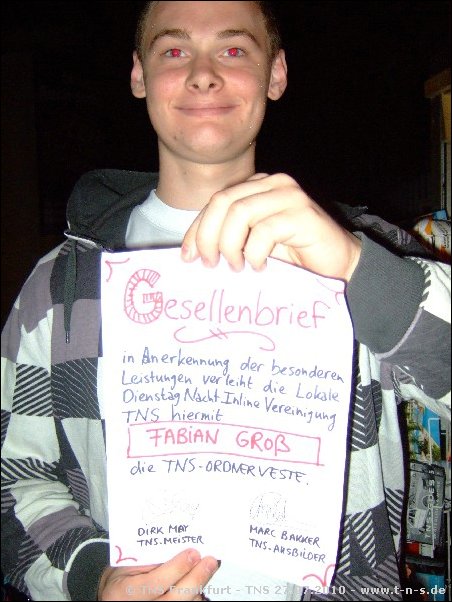 Gesellenbrief
in Anerkennung der besonderen
Leistungen verleiht die Lokale
Dienstag Nacht Inline Vereinigung
TNS hiermit
FABIAN GROß
die TNS-ORDNERVESTE.
DIRK MAY
TNS-MEISTER
MARC BAKKER
TNS-AUSBILDER
© TNS Frankfurt - TNS 27.07.2010 - www.t-n-s.de